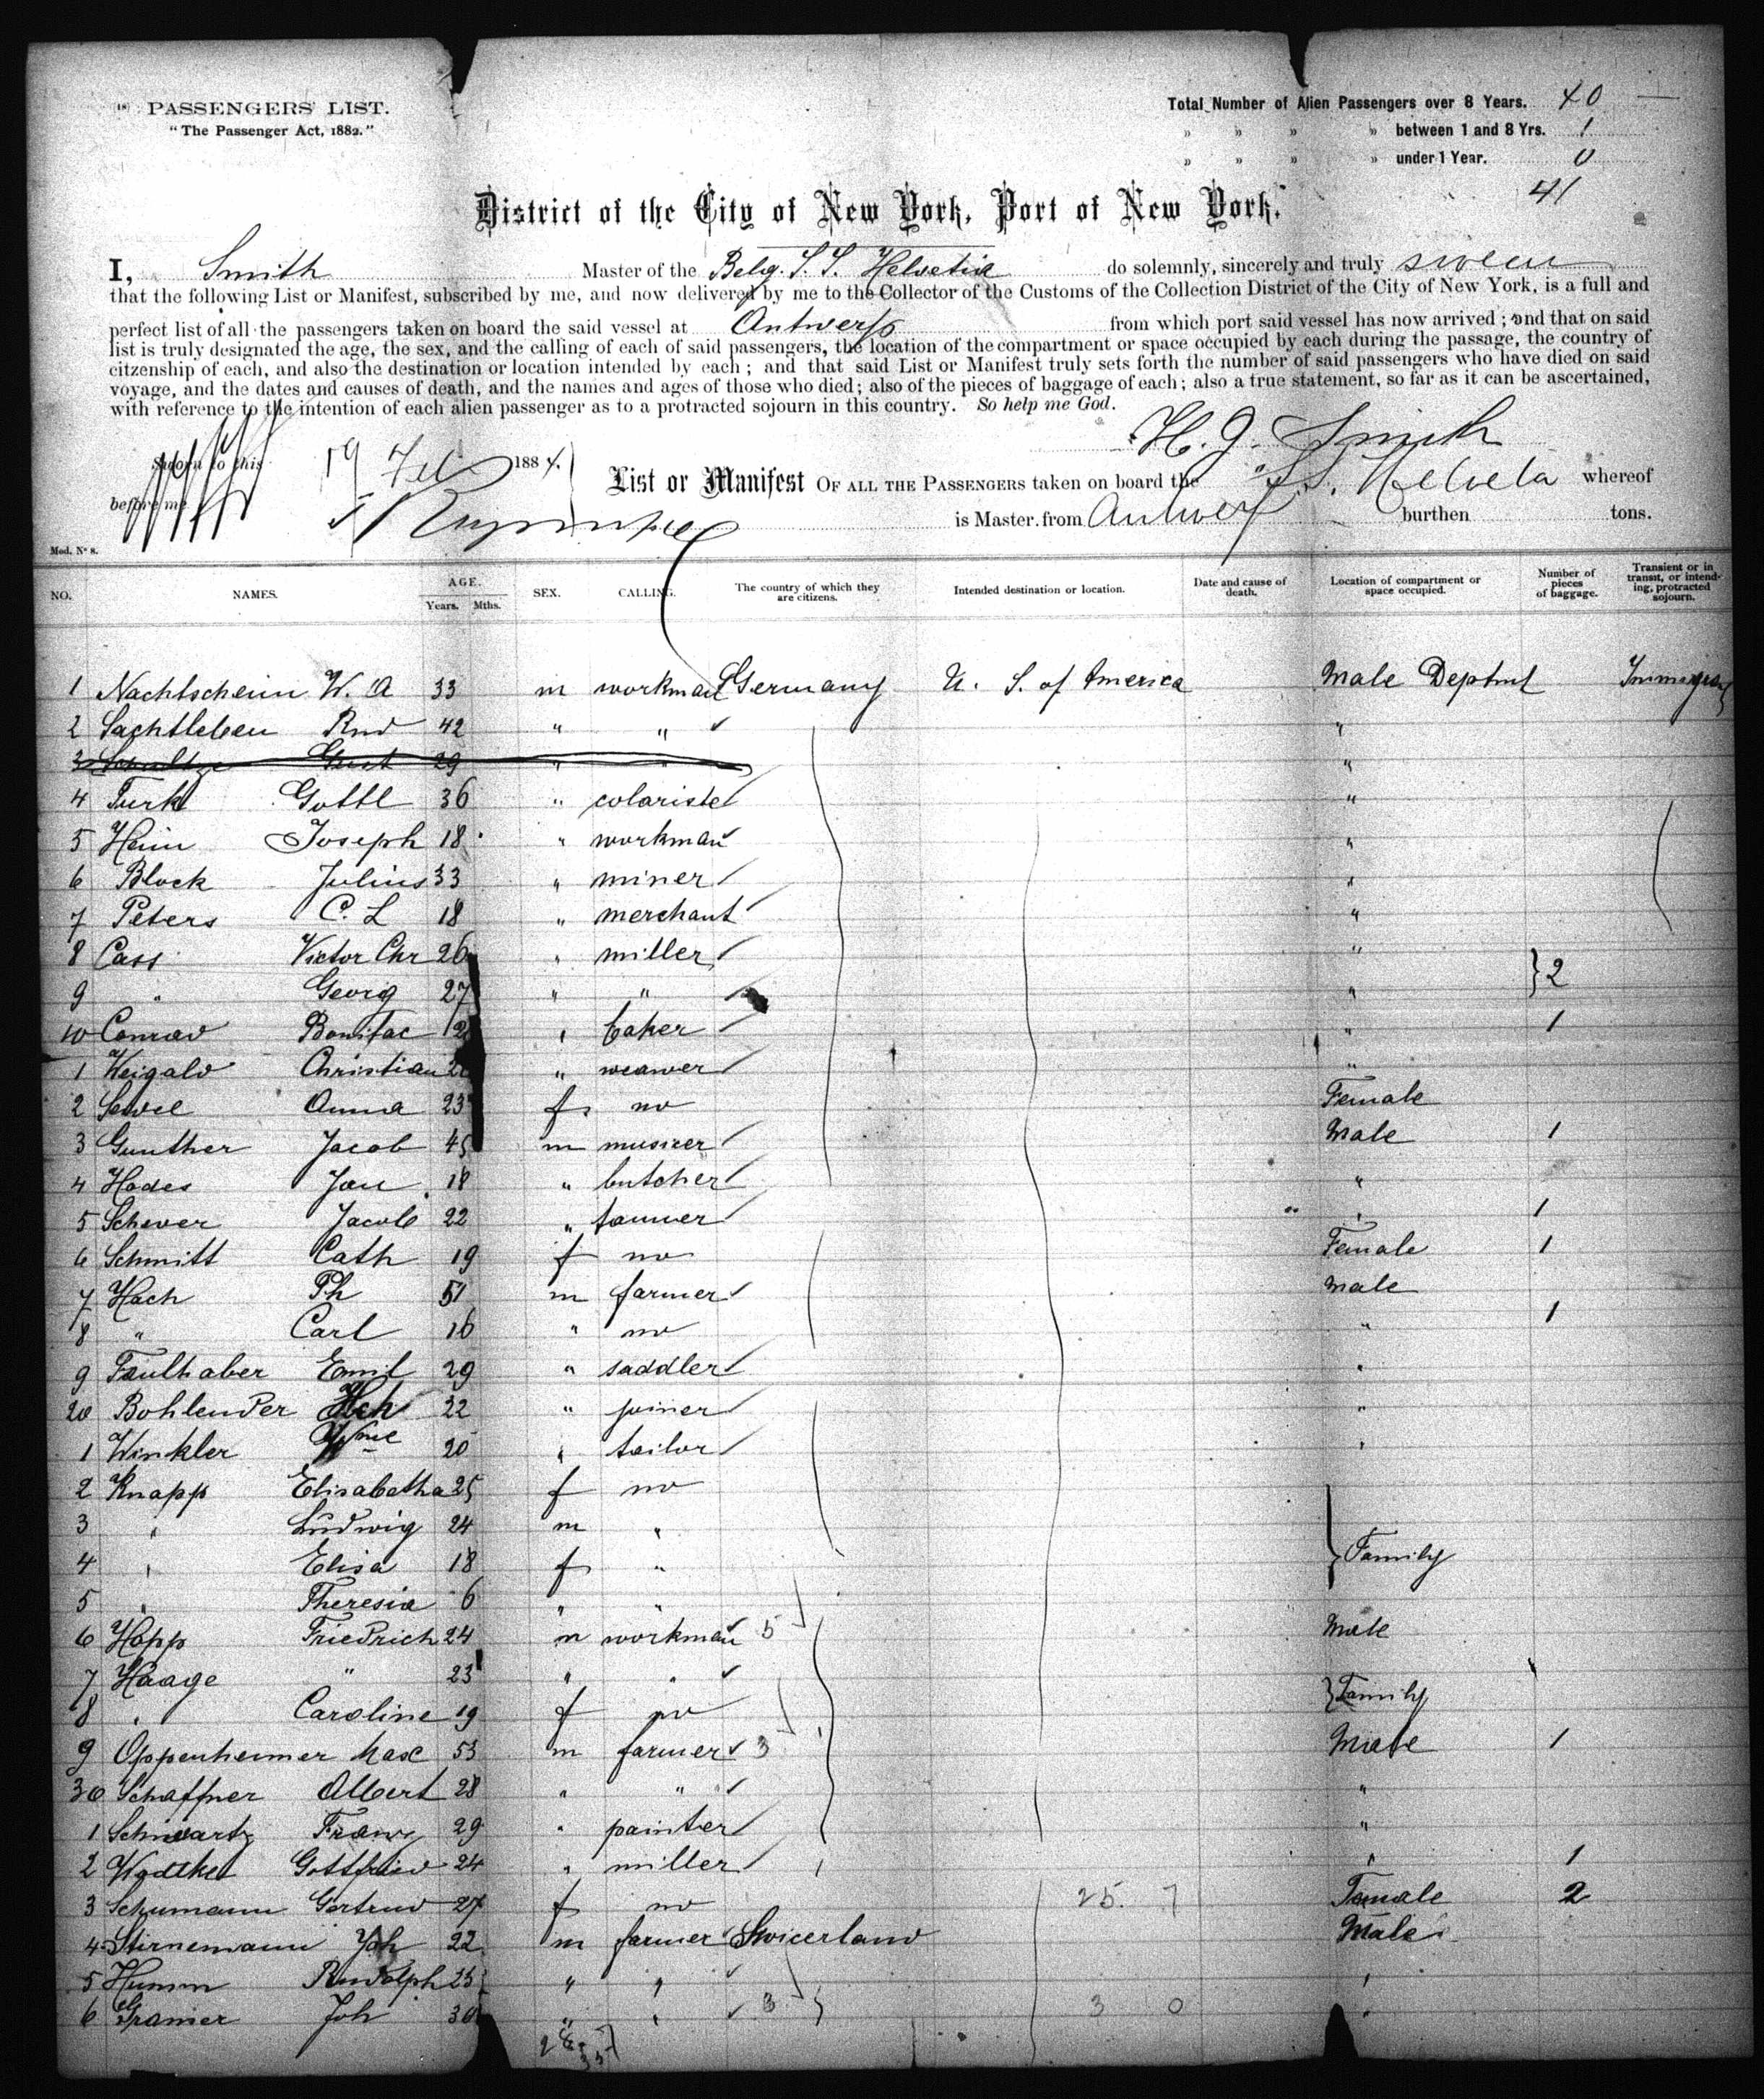 PASSENGERS' LIST.
"The Passenger Act, 1882."
Total Number of Alien Passengers over 8 Years. 40
" " " " between 1 and 8 Yrs. 1
" " " " under 1 Year. 0
41
District of the City of New York, Port of New York.
I, Smith Master of the Belg. S. S. Helvetia do solemnly, sincerely and truly swear
that the following List or Manifest, subscribed by me, and now delivered by me to the Collector of the Customs of the Collection District of the City of New York, is a full and
perfect list of all the passengers taken on board the said vessel at Antwerp from which port said vessel has now arrived; and that on said
list is truly designated the age, the sex, and the calling of each of said passengers, the location of the compartment or space occupied by each during the passage, the country of
citzenship of each, and also the destination or location intended by each; and that said List or Manifest truly sets forth the number of said passengers who have died on said
voyage, and the dates and causes of death, and the names and ages of those who died; also of the pieces of baggage of each; also a true statement, so far as it can be ascertained,
with reference to the intention of each alien passenger as to a protracted sojourn in this country. So help me God.
H. J. Smith
Sworn to this 19 Feb 1884
List or Manifest OF ALL THE PASSENGERS taken on board the S.S. Helvetia whereof
before me
is Master from Antwerp burthen tons.
Mod. No 8.
NO. NAMES. AGE. Years. Mths. SEX. CALLING. The country of which they are citizens. Intended destination or location. Date and cause of death. Location of compartment or space occupied. Number of pieces of baggage. Transient or in transit, or intending, protracted sojourn.
1 Nachtscheim W. A 33 m workman Germany U. S. of America Male Deptmt
2 Sachtleben Rud 42 " " "
3 Gust 29 " " "
4 Turk Gottl 36 " colariste "
5 Heim Joseph 18 " workman "
6 Block Julius 33 " miner "
7 Peters C. L 18 " merchant "
8 Cass Victor Chr 26 " miller "
9 " Georg 27 " " " } 2
10 Conrad Bonifac " baker " 1
1 Weigald Christian " weawer "
2 Anna 23 f no Female
3 Gunther Jacob 45 m musicer Male 1
4 Hodes Jan 18 " butcher "
5 Schever Jacob 22 " tanner " 1
6 Schmitt Cath 19 f no Female 1
7 Hach Ph 51 m farmer Male
8 " Carl 16 " no " 1
9 Faulhaber Emil 29 " saddler "
20 Bohlender Hch 22 " joiner "
1 Winkler 20 " tailor "
2 Knapp Elisabetha 25 f no
3 " Ludwig 24 m "
4 " Elisa 18 f " } Family
5 " Theresia 6 " "
6 Hopp Friedrich 24 m workman 5 Male
7 Haage " 23 " "
8 " Caroline 19 f no } Family
9 Oppenheimer Max 53 m farmer 3 Male 1
30 Schaffner Albert 28 " " "
1 Schwartz Franz 29 " painter "
2 Wodtke Gottfried 24 " miller " 1
3 Schumann Gertrud 27 f no 25. 7 Female 2
4 Stirnemann Joh 22 m farmer Swicerland Male
5 Humm Rudolph 25 " " "
6 Joh 30 " " 3 3 0 "